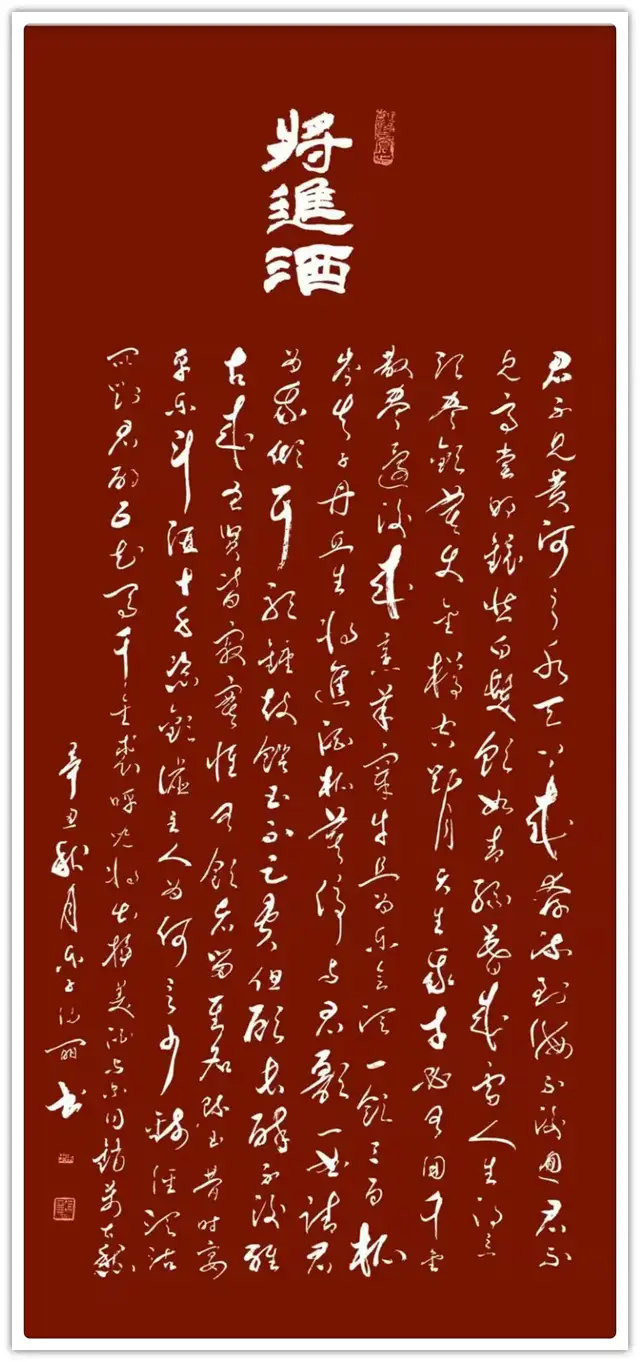 將進酒
君不見黃河之水天上來奔流到海不復迴君不
見高堂明鏡悲白髮朝如青絲暮成雪人生得意
須盡歡莫使金樽空對月天生我才必有用千金
散盡還復來烹羊宰牛且為樂會須一飲三百杯
岑夫子丹丘生將進酒杯莫停與君歌一曲請君
為我傾耳聽鐘鼓饌玉不足貴但願長醉不復醒
古來聖賢皆寂寞惟有飲者留其名陳王昔時宴
平樂斗酒十千恣歡謔主人為何言少錢徑須沽
取對君酌五花馬千金裘呼兒將出換美酒與爾同銷萬古愁
辛丑秋月 丽书